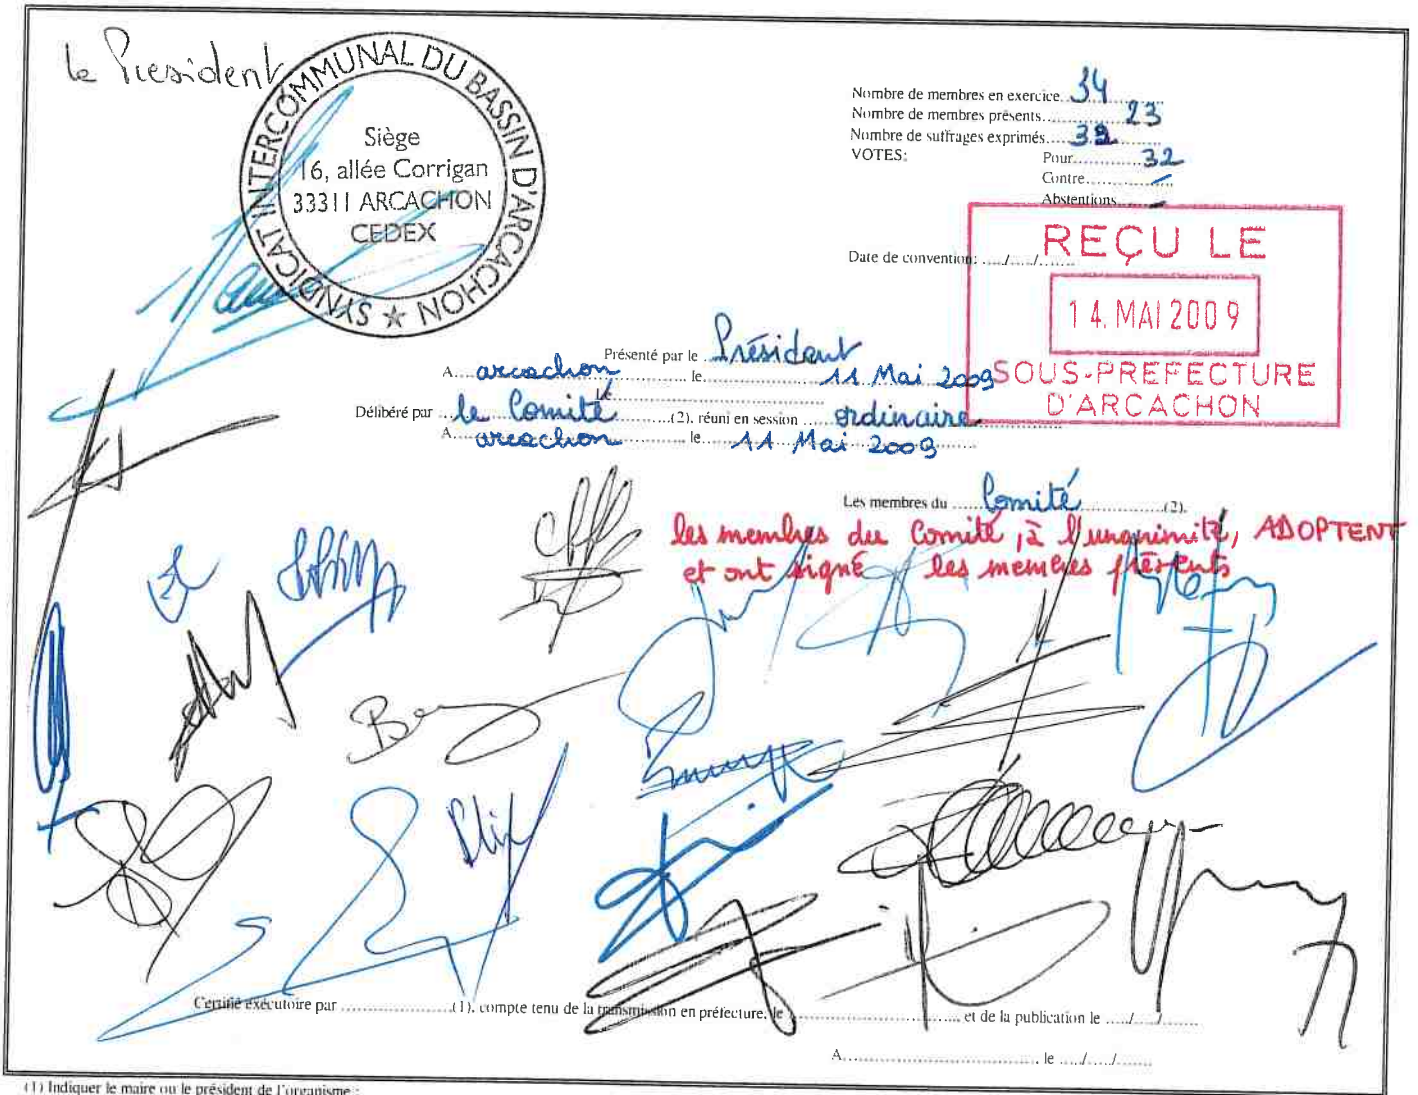 le President
SYNDICAT INTERCOMMUNAL DU BASSIN D'ARCACHON
Siège
16, allée Corrigan
33311 ARCACHON
CEDEX
Nombre de membres en exercice. 34
Nombre de membres présents..... 23
Nombre de suffrages exprimés.... 32
VOTES: Pour........ 32
Contre........ /
Abstentions........ -
Date de convention: ...../...../.......
REÇU LE
14. MAI 2009
SOUS-PREFECTURE
D'ARCACHON
Présenté par le .. Président
A.... arcachon ........ le........ 11 Mai 2009
Le........
Délibéré par .. le Comité ........(2), réuni en session .... ordinaire
A.... arcachon ........ le..... 11 Mai 2009
Les membres du ...... Comité ........(2),
les membres du Comité, à l'unanimité, ADOPTENT
et ont signé les membres présents
Certifié exécutoire par ........................(1), compte tenu de la transmission en préfecture, le ........................ et de la publication le ...../...../........
A........................................ le ...../...../........
(1) Indiquer le maire ou le président de l'organisme :